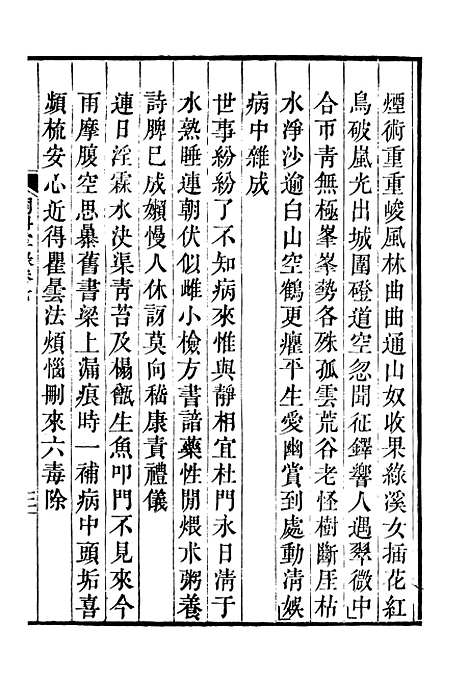 煙術重重峻風林曲曲通山奴收果綠溪女插花紅
鳥破嵐光出城圍磴道空忽聞征鐸響人遇翠微中
合帀青無極峯峯勢各殊孤雲荒谷老怪樹斷厓枯
水淨沙逾白山空鶴更癯平生愛幽賞到處動淸娛
病中雜成
世事紛紛了不知病來惟與靜相宜杜門永日淸于
水熟睡連朝伏似雌小檢方書諳藥性閒煨朮粥養
詩脾已成嬾慢人休訝莫向嵇康責禮儀
連日淫霖水決渠靑苔及榻甑生魚叩門不見來今
雨摩腹空思㬥舊書梁上漏痕時一補病中頭垢喜
頻梳安心近得瞿曇法煩惱刪來六毒除